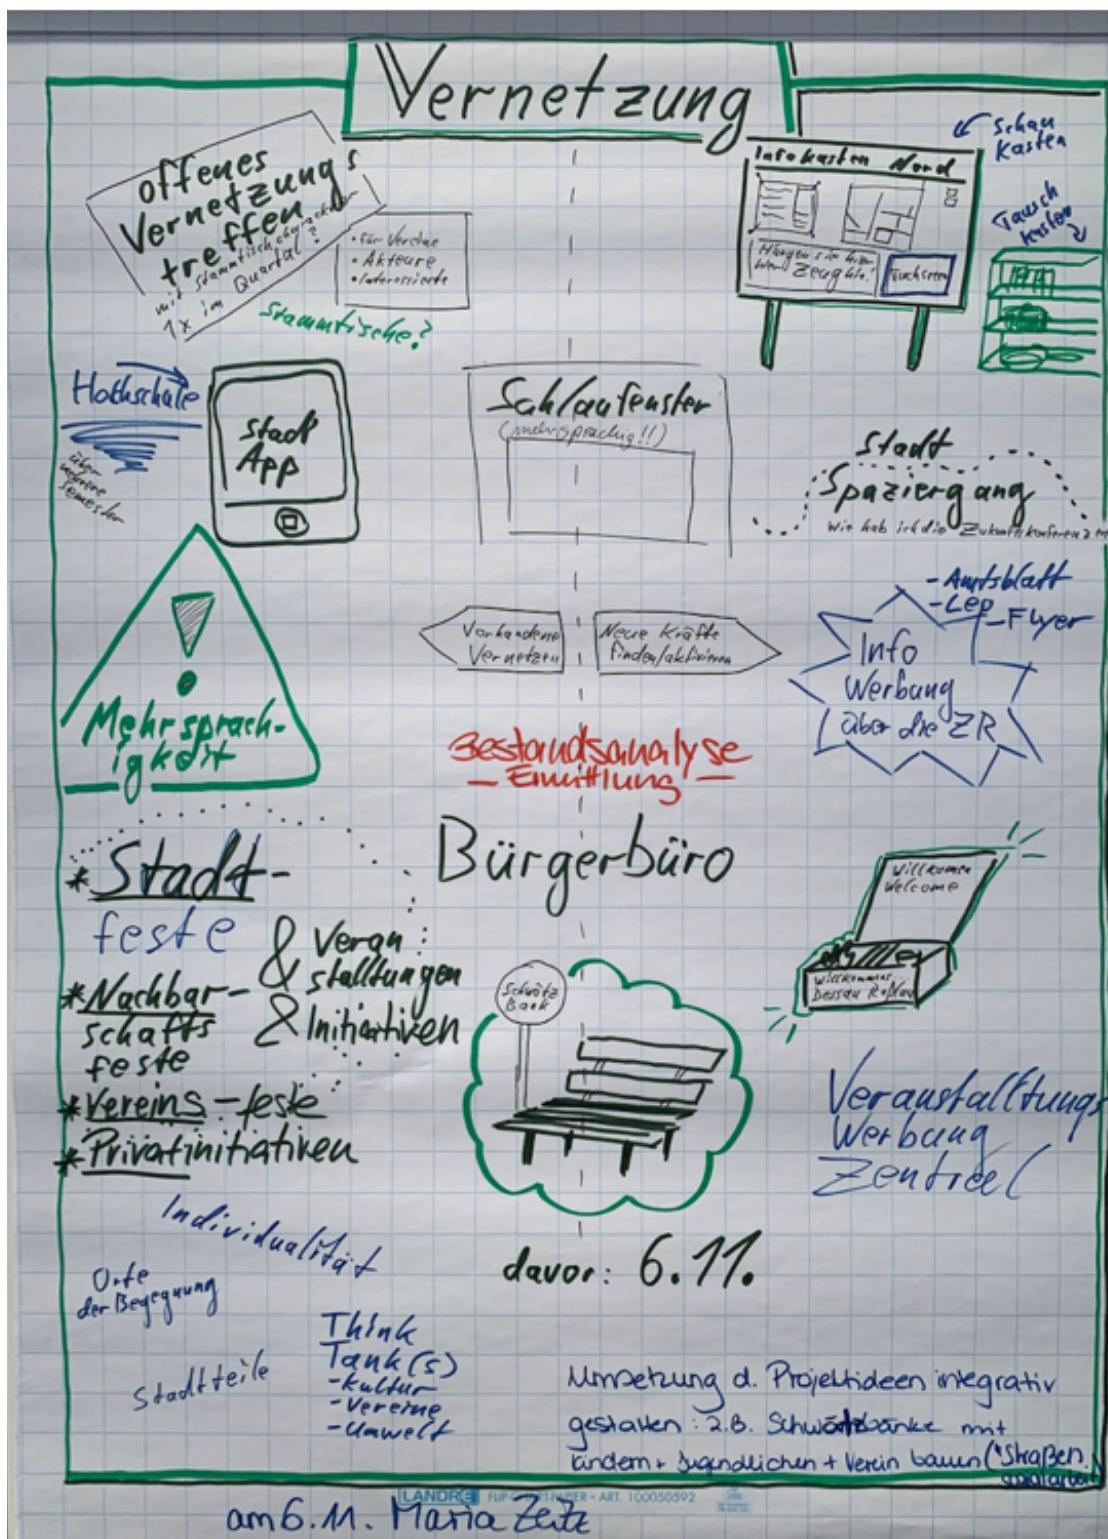 Vernetzung
offenes
Vernetzungs
treffen
mit Stammtischcharakter
1x im Quartal?
• für Vereine
• Akteure
• Interessierte
Stammtische?
Schau
Kasten
Infokasten Nord
Hängen sie hier
Zeug hin!
Tuchsreen
Tausch
kasten
Hochschule
über
mehrere
Semester
Stadt
App
Schlaufenster
(mehrsprachig!!)
Stadt
Spaziergang
wie hab ich die Zukunftskonferenz
Mehrsprach-
igkeit
Vorhandene
Vernetzen
Neue Kräfte
finden/aktivieren
- Amtsblatt
- Lep
- Flyer
Info
Werbung
über die ZR
Bestandsanalyse
- Ermittlung -
Bürgerbüro
* Stadt-
feste
* Nachbar-
schafts
feste
* Vereins-feste
* Privatinitiativen
& Veran
stalltungen
& Initiativen
Willkommen
Welcome
Willkommens...
Dessau Roßlau
Schwätz
Bank
Veranstalltungs
Werbung
Zentral
Individualität
Orte
der Begegnung
Stadtteile
davor: 6.11.
Think
Tank(s)
- Kultur
- Vereine
- Umwelt
Umsetzung d. Projektideen integrativ
gestalten: z.B. Schwätzbänke mit
Kindern + Jugendlichen + Verein bauen ("Straßen
sozialarbeit
LANDRÉ FLIP-CHART-PAPIER • ART. 100050592
am 6.11. Maria Zeitz